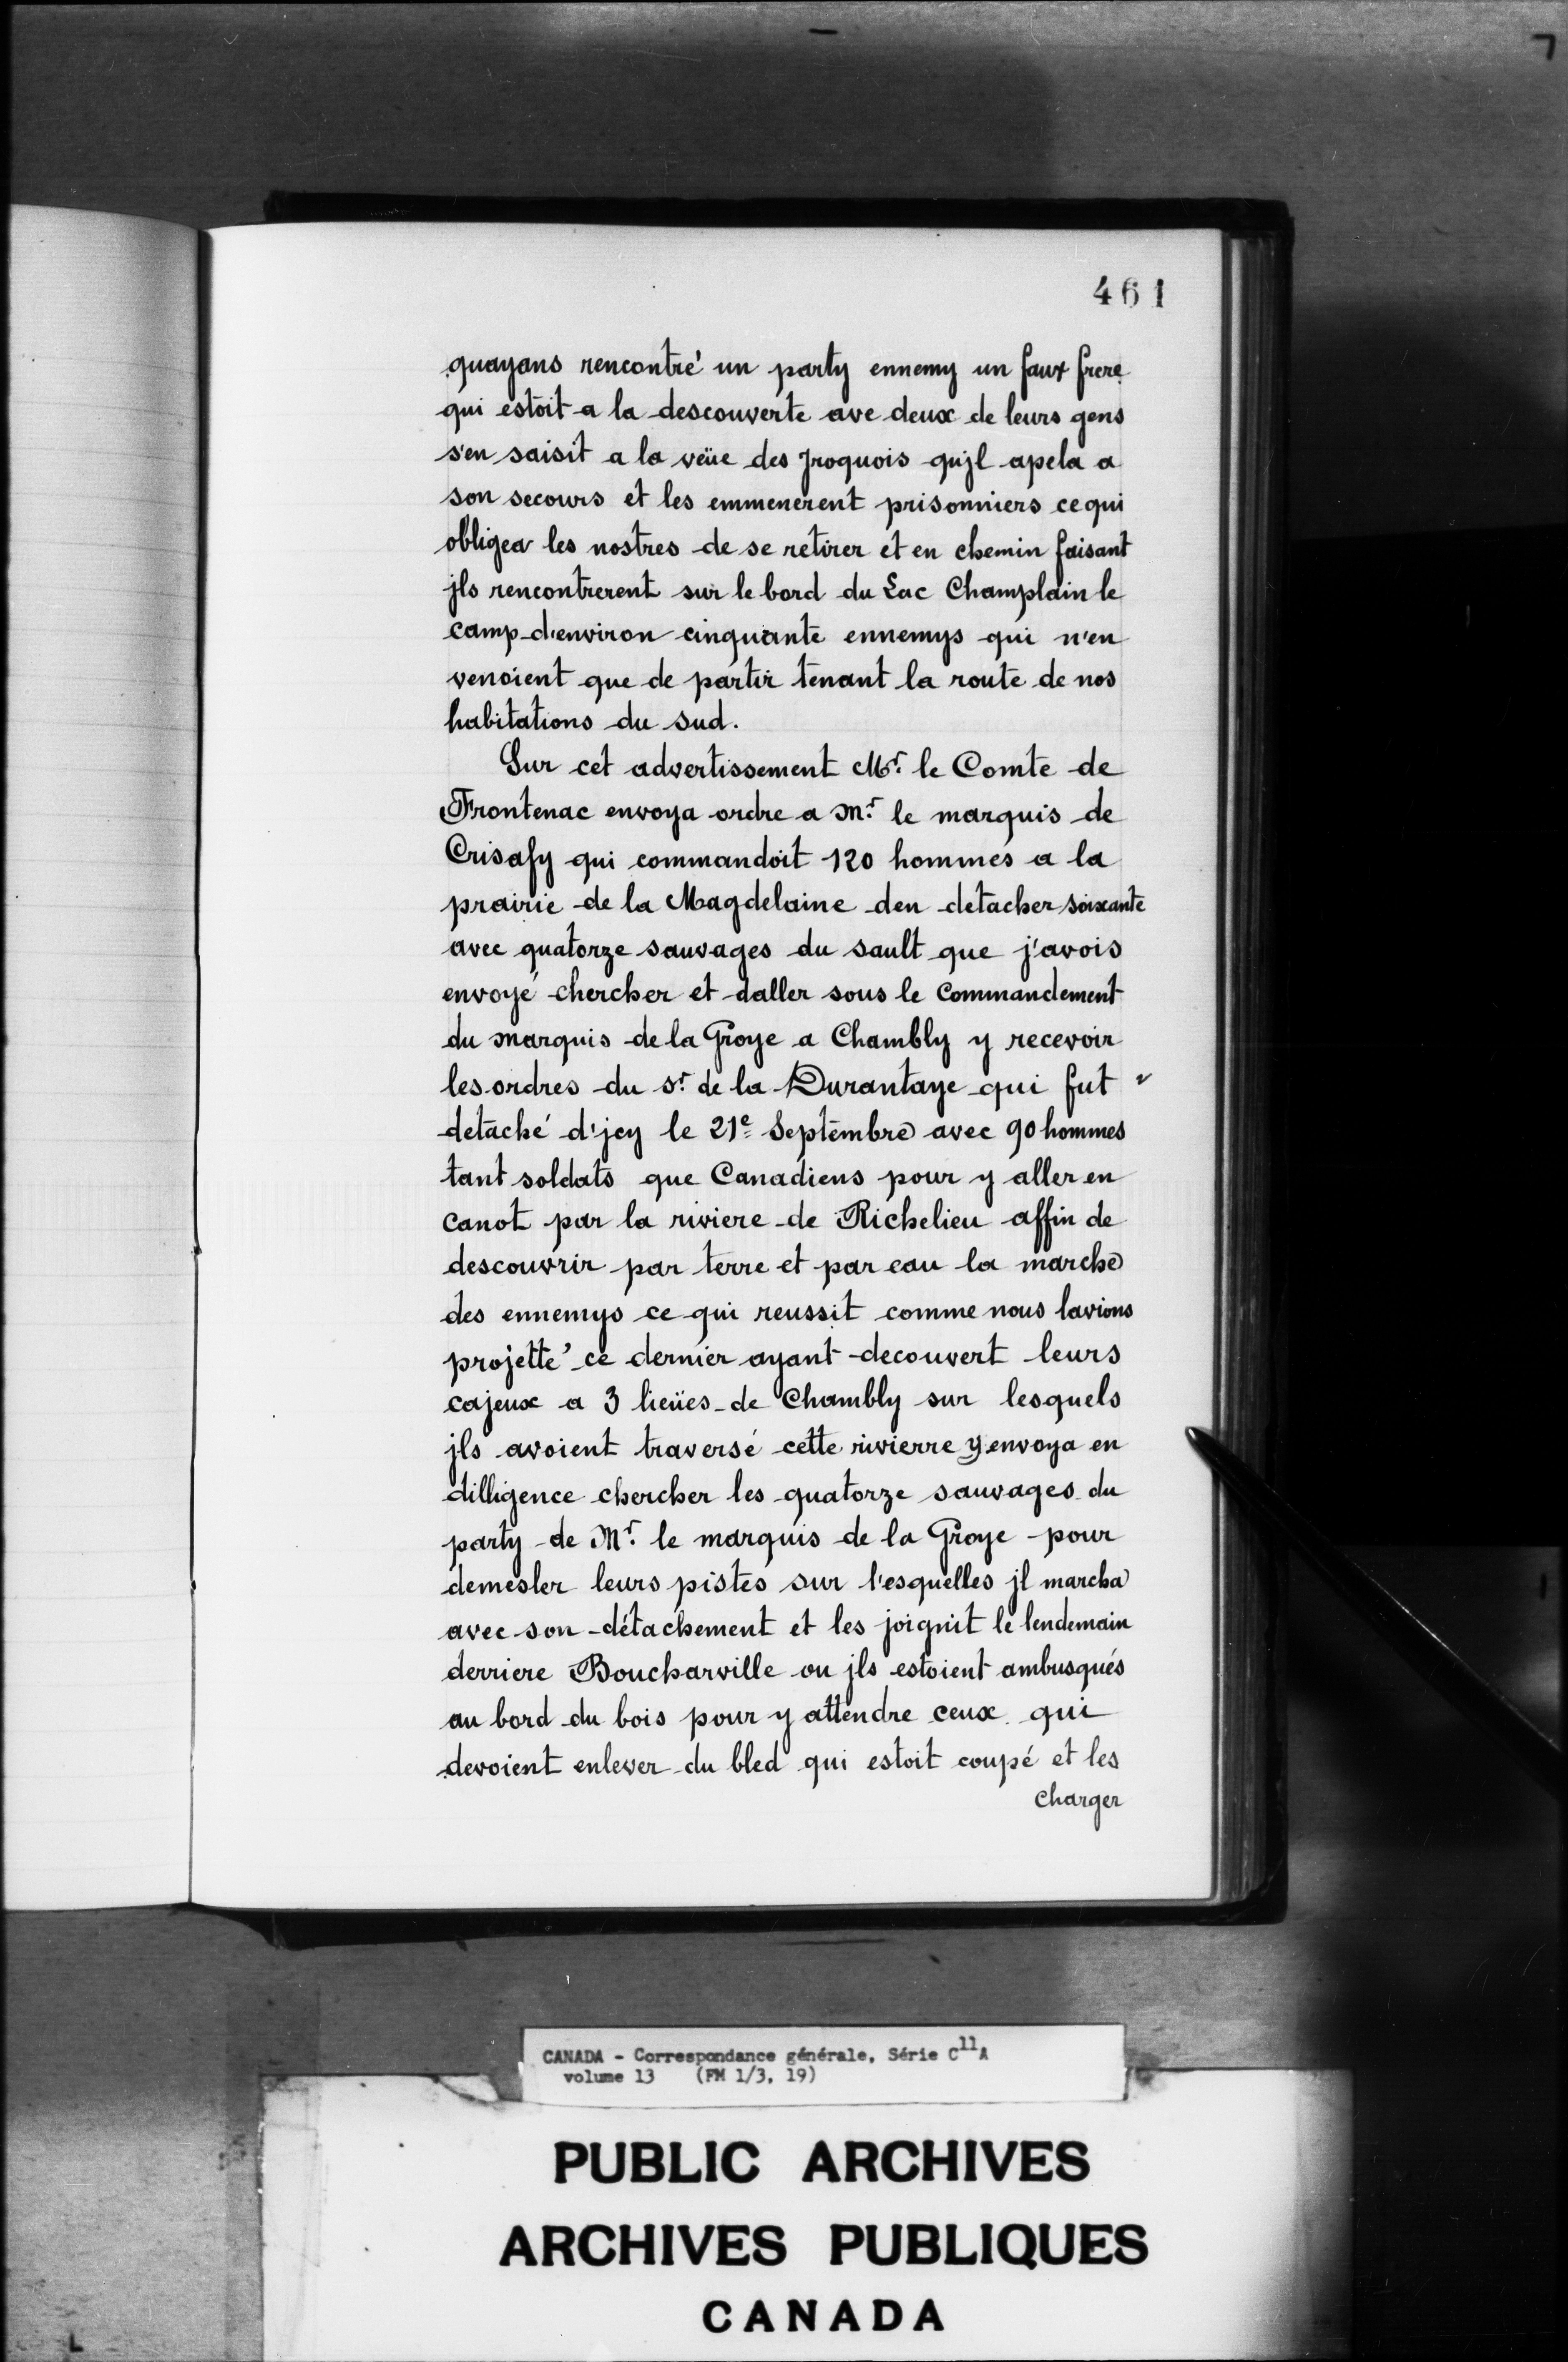 461
quayans rencontré un party ennemy un faux frere
qui estoit a la descouverte ave deux de leurs gens
s'en saisit a la veüe des jroquois qujl apela a
son secours et les emmenerent prisonniers ce qui
obligea les nostres de se retirer et en chemin faisant
jls rencontrerent sur le bord du Lac Champlain le
camp d'environ cinquante ennemys qui n'en
venoient que de partir tenant la route de nos
habitations du sud.
Sur cet advertissement Mr. le Comte de
Frontenac envoya ordre a Mr. le marquis de
Crisafy qui commandoit 120 hommes a la
prairie de la Magdelaine den detacher soixante
avec quatorze sauvages du sault que j'avois
envoyé chercher et daller sous le Commandement
du marquis de la Groye a Chambly y recevoir
les ordres du sr. de la Durantaye qui fut
detaché d'jcy le 21e Septembre avec 90 hommes
tant soldats que Canadiens pour y aller en
canot par la riviere de Richelieu affin de
descouvrir par terre et par eau la marche
des ennemys ce qui reussit comme nous lavions
projetté ce dernier ayant decouvert leurs
cajeux a 3 lieües de Chambly sur lesquels
jls avoient traversé cette rivierre y envoya en
dilligence chercher les quatorze sauvages du
party de Mr. le marquis de la Groye pour
demesler leurs pistes sur l'esquelles jl marcha
avec son détachement et les joignit le lendemain
derriere Boucharville ou jls estoient ambusqués
au bord du bois pour y attendre ceux qui
devoient enlever du bled qui estoit coupé et les
charger
CANADA - Correspondance générale, Série C11A
volume 13 (FM 1/3, 19)
PUBLIC ARCHIVES
ARCHIVES PUBLIQUES
CANADA